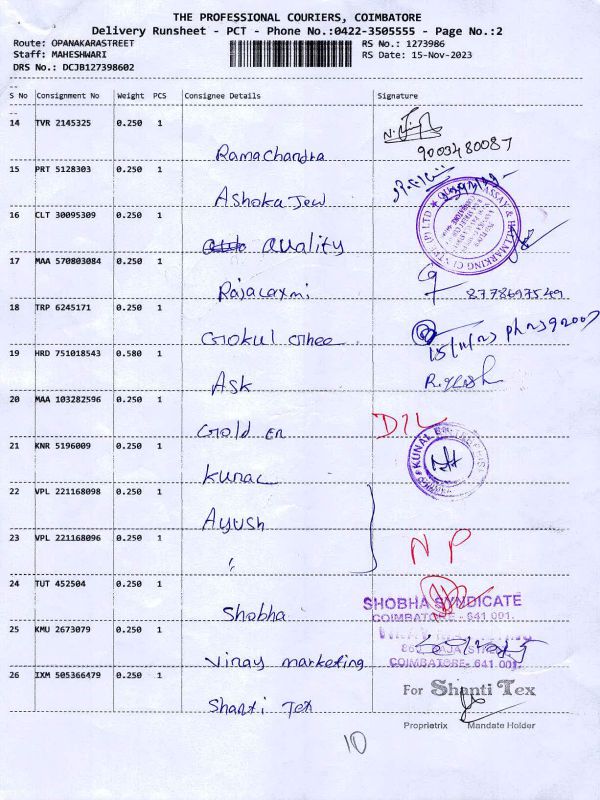 THE PROFESSIONAL COURIERS, COIMBATORE
Delivery Runsheet - PCT - Phone No.:0422-3505555 - Page No.:2
Route: OPANAKARASTREET RS No.: 1273986
Staff: MAHESHWARI RS Date: 15-Nov-2023
DRS No.: DCJB127398602
S No Consignment No Weight PCS Consignee Details Signature
14 TVR 2145325 0.250 1
Ramachandra 9003480087
15 PRT 5128303 0.250 1
Ashoka Jew
16 CLT 30095309 0.250 1
Quality
ASSAY & HALLMARKING (P) LTD
17 MAA 570803084 0.250 1
Rajalaxmi 8778697549
18 TRP 6245171 0.250 1
Gokul Ghee
19 HRD 751018543 0.580 1
Ask
20 MAA 103282596 0.250 1
Gold En D/L
21 KNR 5196009 0.250 1
Kunal KUNAL
22 VPL 221168098 0.250 1
Ayush
23 VPL 221168096 0.250 1
" NP
24 TUT 452504 0.250 1
Shobha SHOBHA SYNDICATE
COIMBATORE - 641 001.
25 KMU 2673079 0.250 1
Vinay marketing COIMBATORE- 641 001.
26 IXM 505366479 0.250 1
Shanti Tex For Shanti Tex
Proprietrix Mandate Holder
10